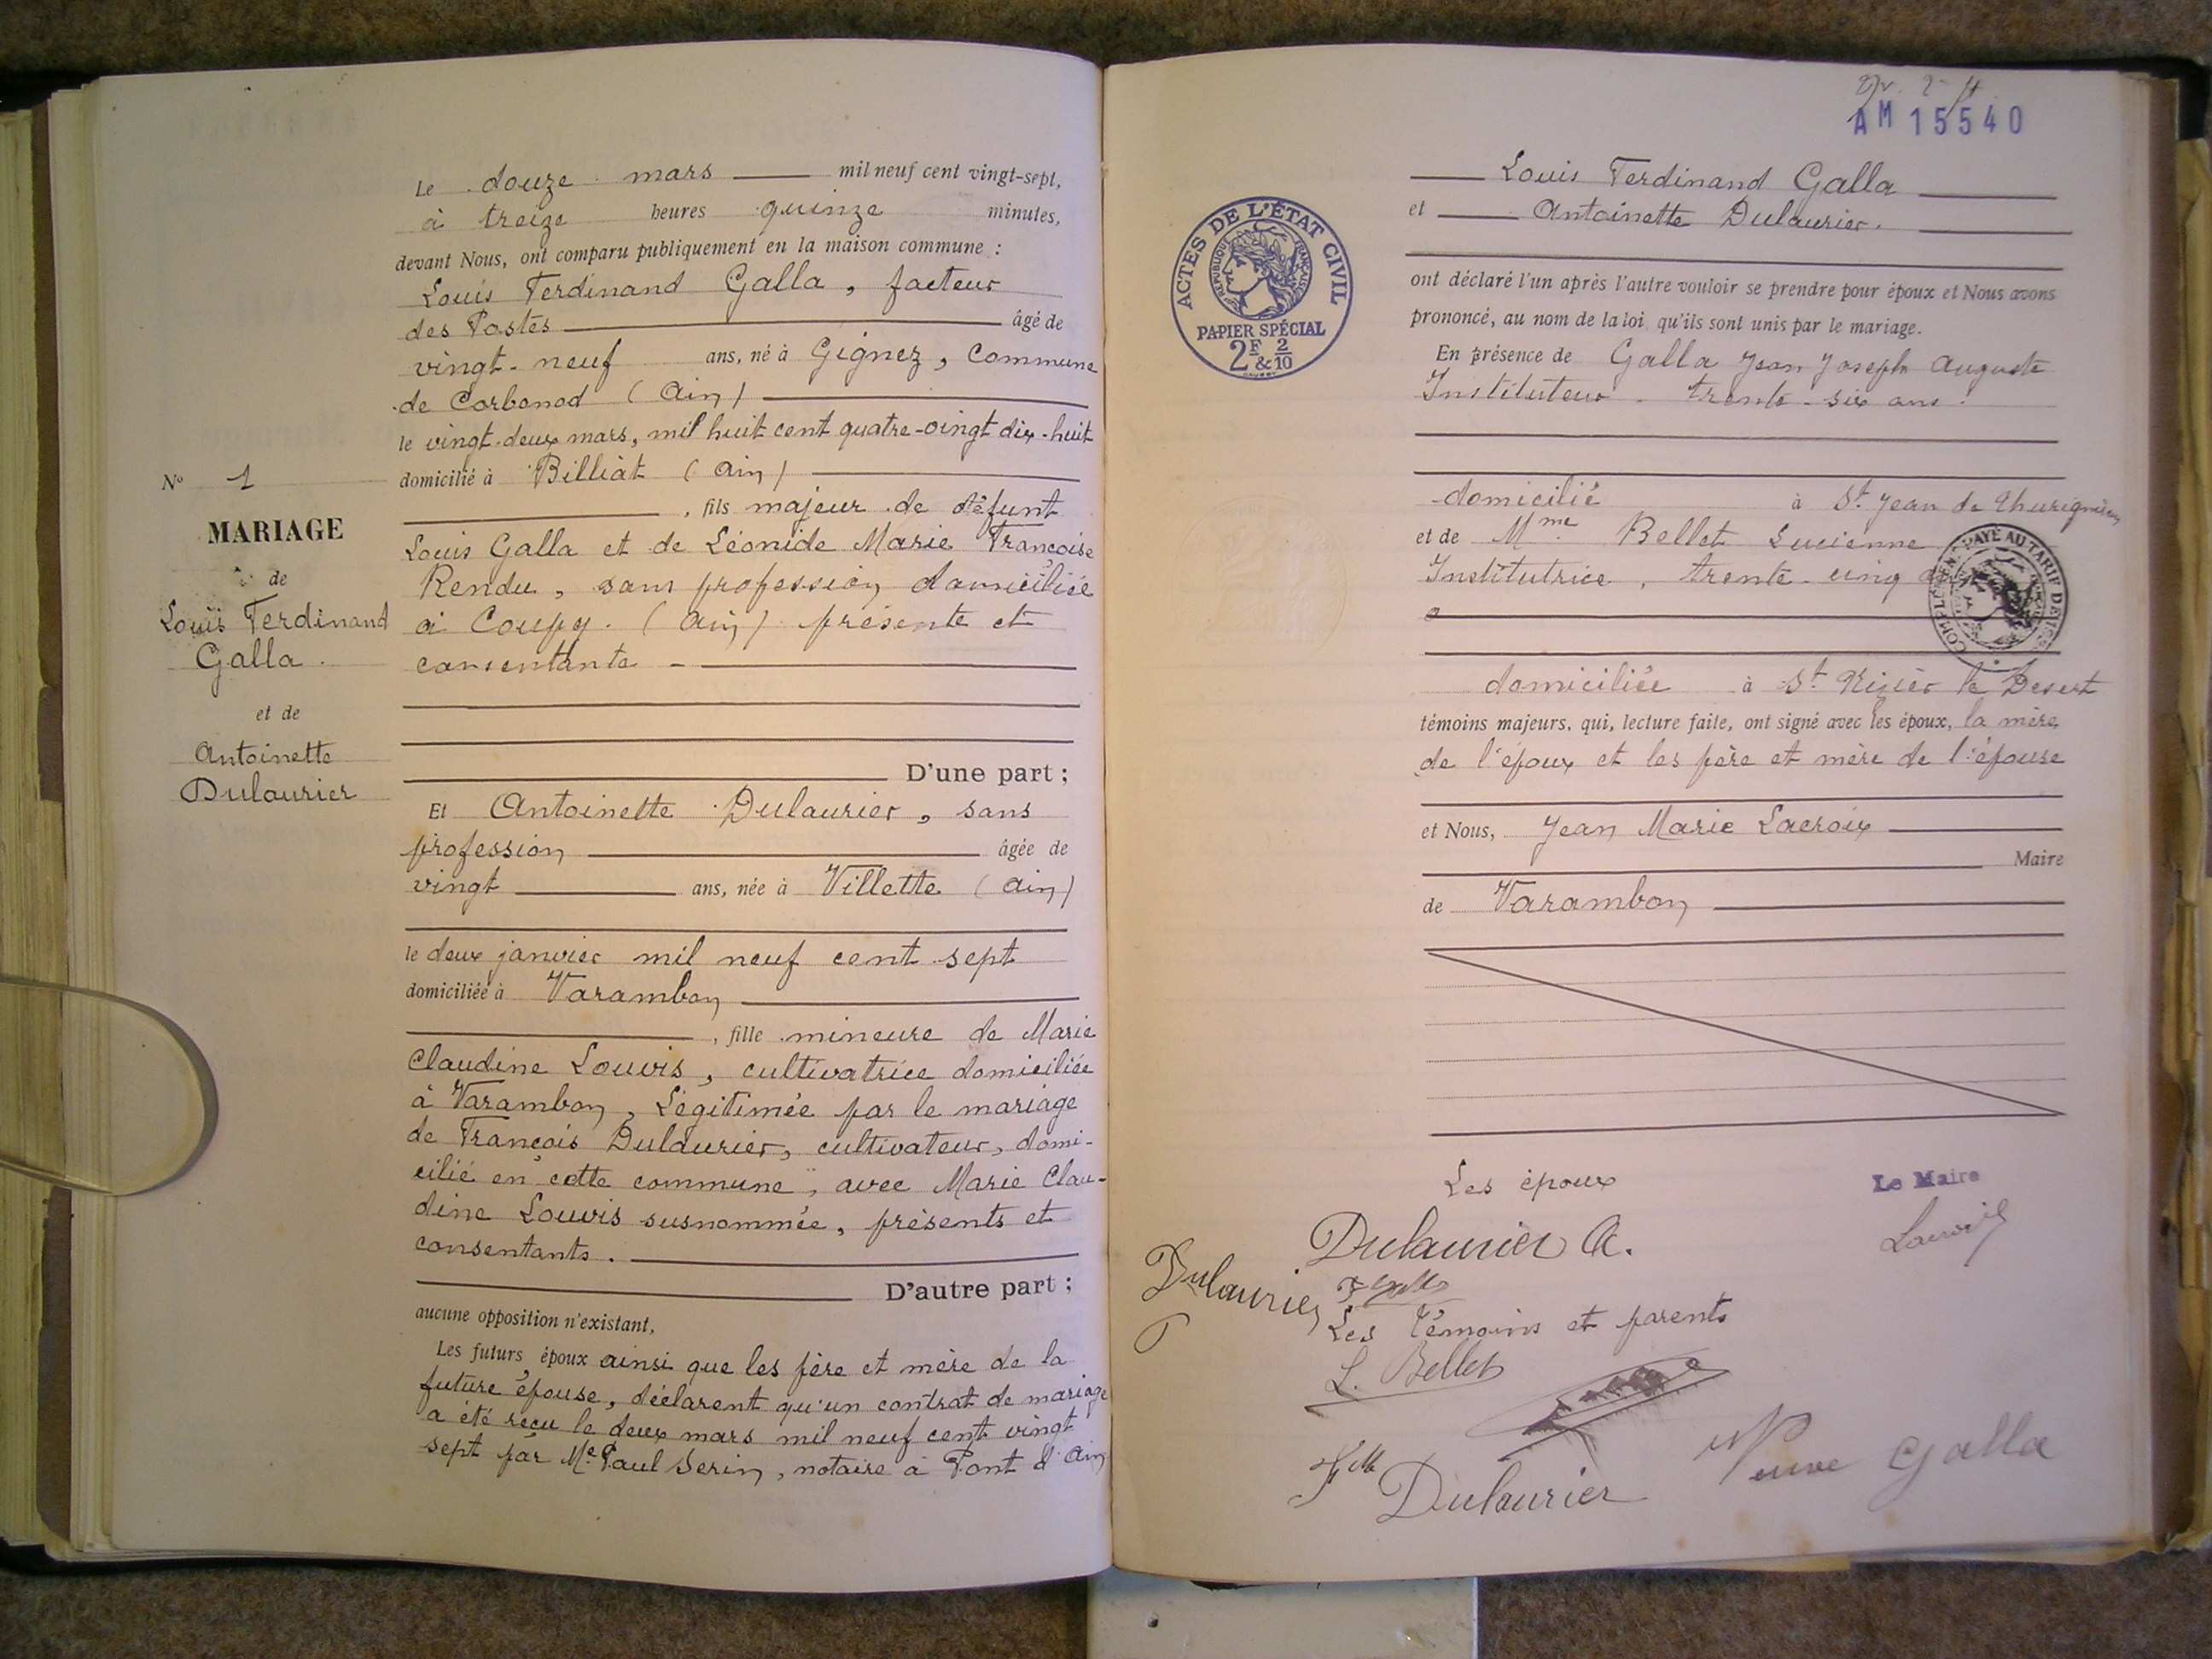 N° 1
MARIAGE
de
Louis Ferdinand
Galla.
et de
Antoinette
Dulaurier
Le douze mars mil neuf cent vingt-sept,
à treize heures quinze minutes,
devant Nous, ont comparu publiquement en la maison commune :
Louis Ferdinand Galla, facteur
des Postes âgé de
vingt-neuf ans, né à Gignez, Commune
de Corbonod (Ain)
le vingt-deux mars, mil huit cent quatre-vingt dix-huit
domicilié à Billiat (Ain)
, fils majeur de défunt
Louis Galla et de Léonide Marie Françoise
Rendu, sans profession domiciliée
à Coupy. (Ain) présente et
consentante -
D'une part ;
Et Antoinette Dulaurier, sans
profession âgée de
vingt ans, née à Villette (Ain)
le deux janvier mil neuf cent sept
domiciliée à Varambon
, fille mineure de Marie
Claudine Louvis, cultivatrice domiciliée
à Varambon, Légitimée par le mariage
de François Dulaurier, cultivateur, domi-
cilié en cette commune, avec Marie Clau-
dine Louvis susnommée, présents et
consentants.
D'autre part ;
aucune opposition n'existant,
Les futurs époux ainsi que les père et mère de la
future épouse, déclarent qu'un contrat de mariage
a été reçu le deux mars mil neuf cent vingt
sept par Me Paul Serin, notaire à Pont d'Ain
AM 15540
Louis Ferdinand Galla
et Antoinette Dulaurier.
ACTES DE L'ÉTAT CIVIL
RÉPUBLIQUE FRANÇAISE
PAPIER SPÉCIAL
2F & 2/10
ont déclaré l'un après l'autre vouloir se prendre pour époux et Nous avons
prononcé, au nom de la loi, qu'ils sont unis par le mariage.
En présence de Galla Jean Joseph Auguste
Instituteur. trente-six ans.
domicilié à St Jean de
et de Mme Bellet Lucienne
Institutrice, trente-cinq
PAYÉ AU TARIF DE
domiciliée à St Nizier le Desert
témoins majeurs, qui, lecture faite, ont signé avec les époux, la mère
de l'époux et les père et mère de l'épouse
et Nous, Jean Marie Lacroix
Maire
de Varambon
Les époux
Le Maire
Lacroix
Dulaurier A.
Dulaurier
F Galla
Les Témoins et parents
L. Bellet
Veuve Galla
Dulaurier